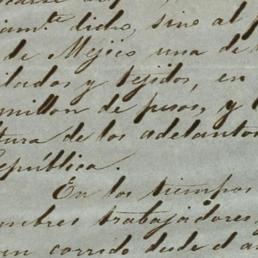 dicho, sino al p
de Mejico una de
tejidos, en
millon de pesos, y
tura de los adelantos
epública.
En los tiempos
mbres trabajadores,
un corrido desde el a